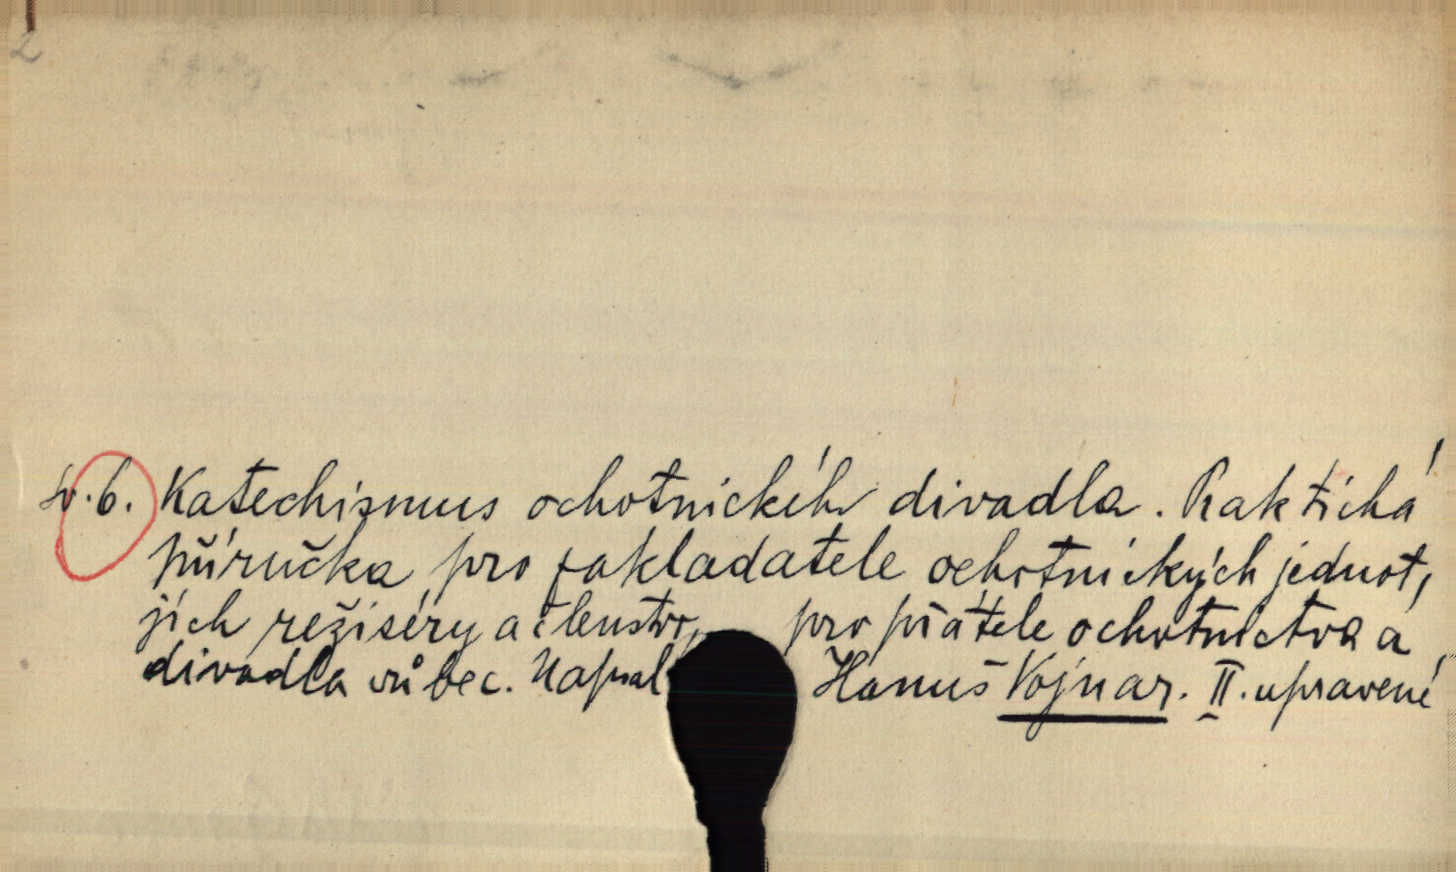 2
Sv. 6. Katechismus ochotnickéh divadla. Praktická
příručka pro zakladatele ochotnických jednot,
jich režiséry a členstvo, pro přátele ochotnictva a
divadla vůbec. Napsal Hanuš Vojnar. II. upravené